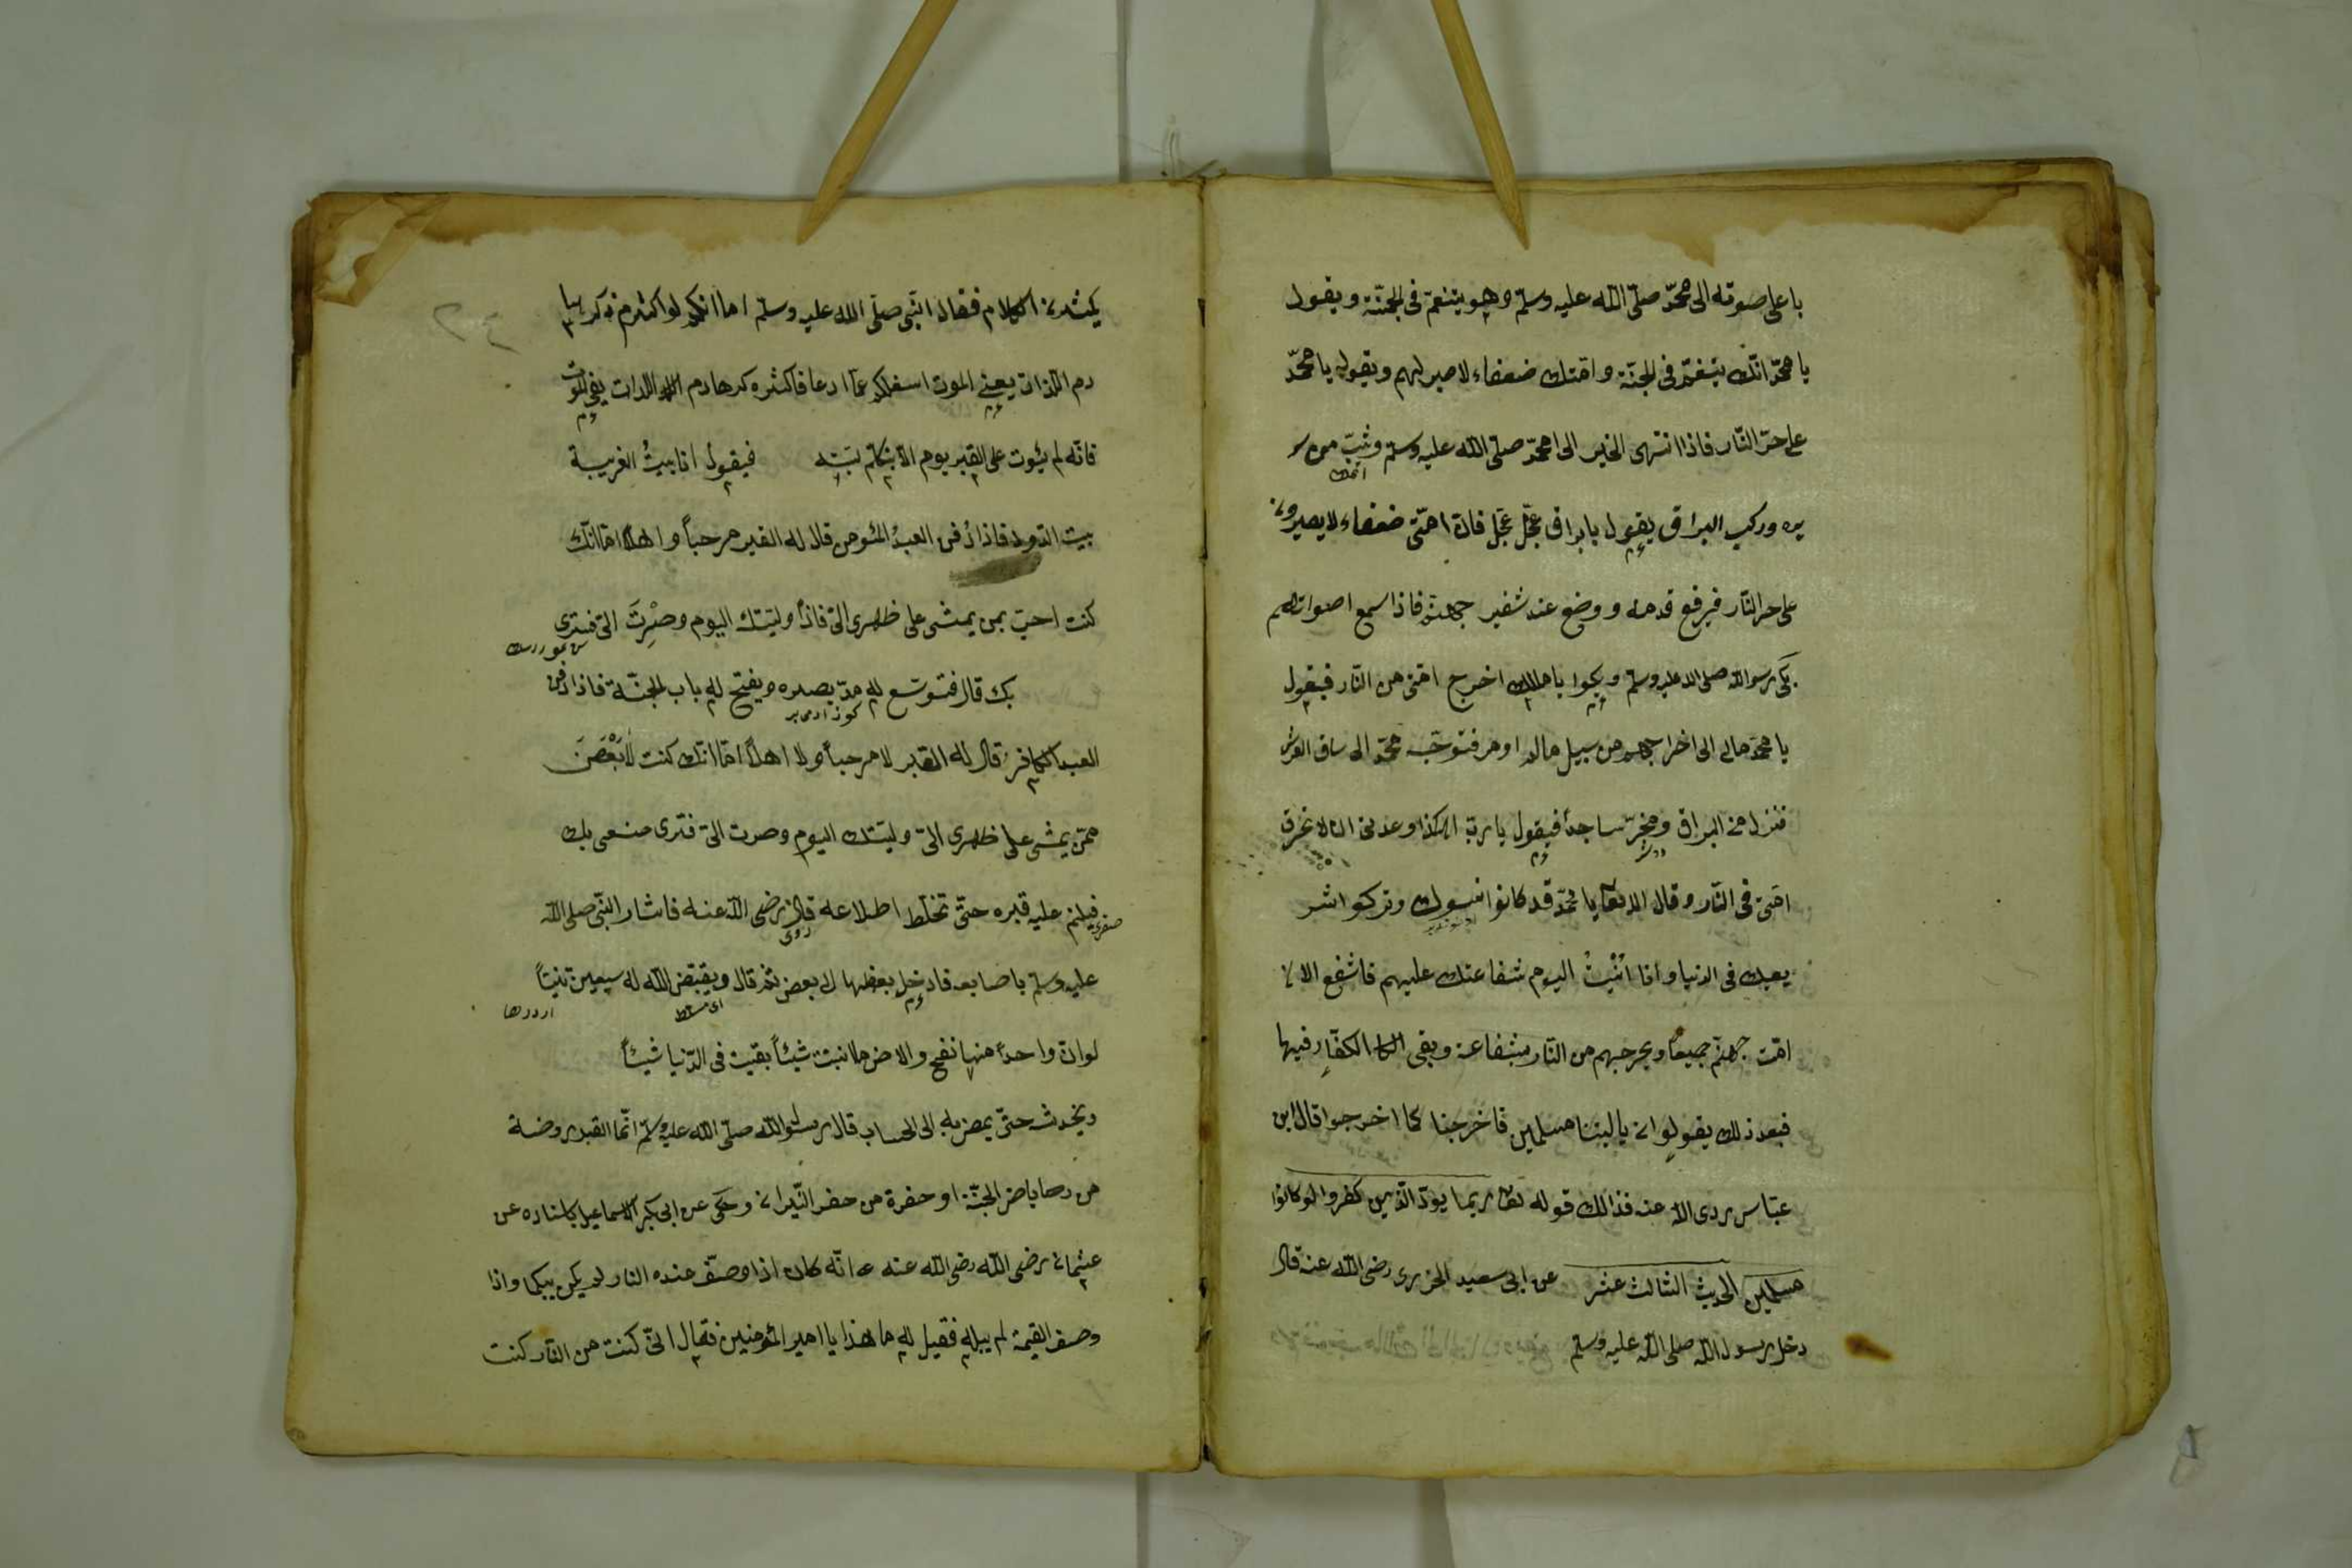 باعلى صوته الى محمّد صلّى اللّه عليه وسلّم وهو يتنعّم فى الجنّة ويقول
يا محمّد انّك يتنعّم فى الجنّة وامّتك ضعفاء لا صبر لهم ويقول يا محمّد
على حرّ النّار فاذا انتهى الخبر الى محمّد صلّى اللّه عليه وسلّم وثبّ من سر
يره وركب البراق يقول يا براق عجّل عجّل فانّ امّتى ضعفاء لا يصبرون
على حر النّار فيرفع قدمه ووضع عند شفير جهنّم فاذا سمع اصواتهم
بكى رسول اللّه صلى الله عليه وسلّم يا مالك اخرج امّتى من النّار فيقول
يا محمّد مالى الى اخراجهم من سبيل فتوجّه محمّد الى ساق العرش
فنزل من البراق ويخرّ ساجداً فيقول يا ربّ هكذا وعدنى ان لا تحرق
امّتى فى النّار وقال الله تعالى يا محمّد قد كانوا نسوك وتركوا شر
يعتك فى الدنيا وانا اليوم شفاعتك عليهم فاشفع الان
امّت جهنّم جميعاً ويخرجهم من النّار بشفاعة وبقى الكفّار فيها
فبعد ذلك يقولوان يا ليتنا مسلمين فاخرجنا كما اخرجوا قال ابن
عبّاس ردى الله عنه فذالك قوله تعالى ربما يودّ الّذين كفروا لو كانوا
مسلمين الحديث الثالث عشر عن ابى سعيد الخزرى رضى اللّه عنه قال
دخل رسول اللّه صلى اللّه عليه وسلّم
يكثرن الكلام فقال النّبى صلّى اللّه عليه وسلّم اما انكم لو اكثرتم ذكر ها
دم اللّذات يعنى الموت اسفلكم عمّا ارعا فاكثره كر هادم اللذات يعنى الموت
فانّه لم يئوت على القبر يوم الّا يتكلّم بيته فيقول انا بيت الغريبة
بيت الدود فاذا دفن العبدُ المئومن قال له القبر مرحباً واهلاً امّا انّك
كنت احبّ بمن يمشى على ظهرى الىّ فاذا وليتك اليوم وصِرْتَ الىّ فترى
بك قال فتوسّع له مدّ بصره ويفتح له باب الجنّة فاذا دفن
العبد الكافر قال له القبر لا مرحباً ولا اهلاً امّا انّك كنت لابغض
ممّن يمشى على ظهرى الىّ وليتك اليوم وصرت الىّ فترى صنعى بك
فيلئم عليه قبره حتّى تختلط اضلاعه قال رضى اللّه عنه فاشار النّبى صلى اللّه
عليه وسلم باصابعه فادخل بعضها ل بعض ثم قال ويقبّض اللّه له سبعين تنيناً
لو انّ واحداً منها نفح والارض ما انبتت شيئاً بقيت فى الدّنيا شيئاً
ويخدش حتّى يمضى به الى الحساب قال رسول اللّه صلّى اللّه عليه وسلّم انّما القبر روضة
من رياض الجنّة او حفرة من حفر النّيران وحكى عن ابى بكر الاسماعيل باسناده عن
عثمان رضى اللّه رضى اللّه عنه انّه كان اذا وصف عنده النار لم يكن يبكى واذا
وصف القيمة لم يبك فقيل له ما هذا يا امير المئومنين فقال انّى كنت من النّار كنت